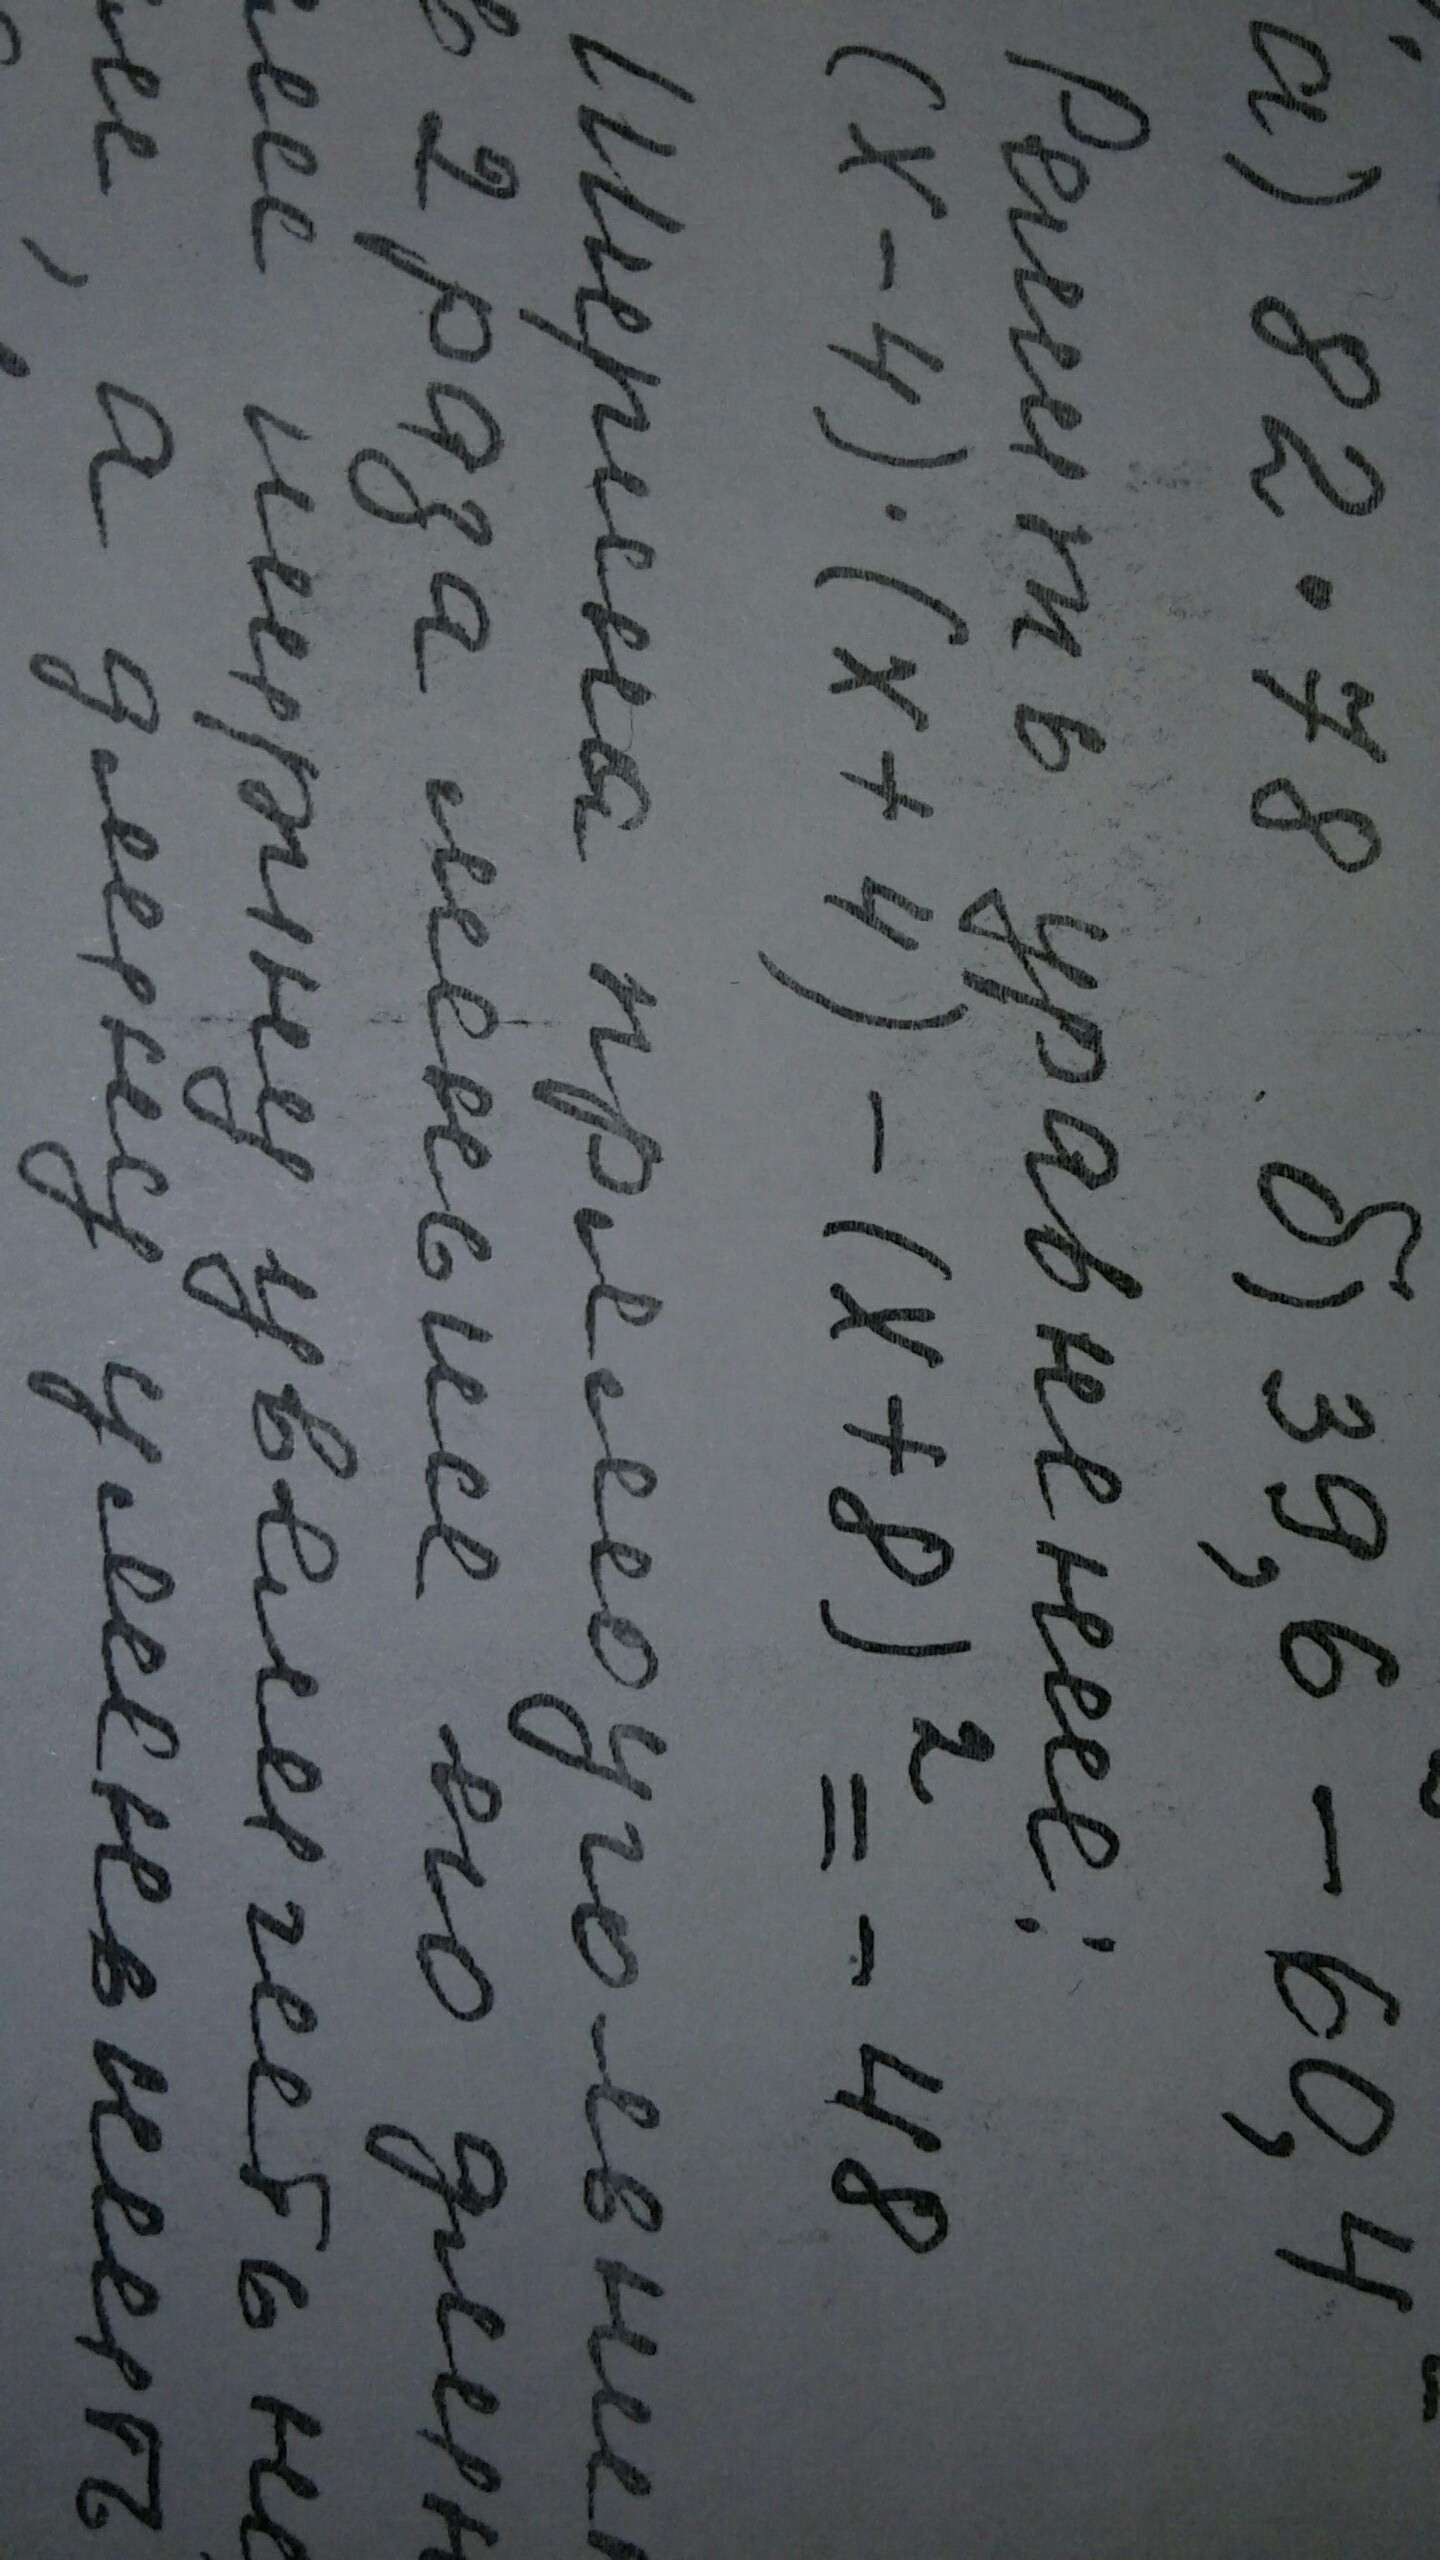 а) 82 · 78 б) 39,6 - 60,4
Решить уравнение:
(x - 4) · (x + 4) - (x + 8)² = - 48
Ширина прямоугольни
в 2 раза меньше его длин
ширину увеличить на
а длину уменьшить